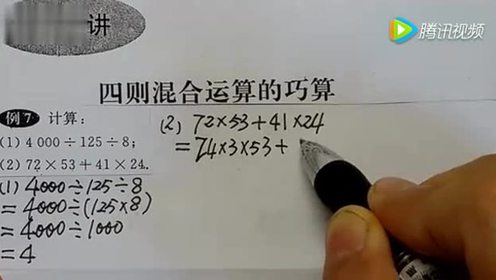 讲
腾讯视频
四则混合运算的巧算
例7 计算:
(1) 4 000÷125÷8;
(2) 72×53+41×24.
(1) 4000÷125÷8
=4000÷(125×8)
=4000÷1000
=4
(2) 72×53+41×24
=24×3×53+